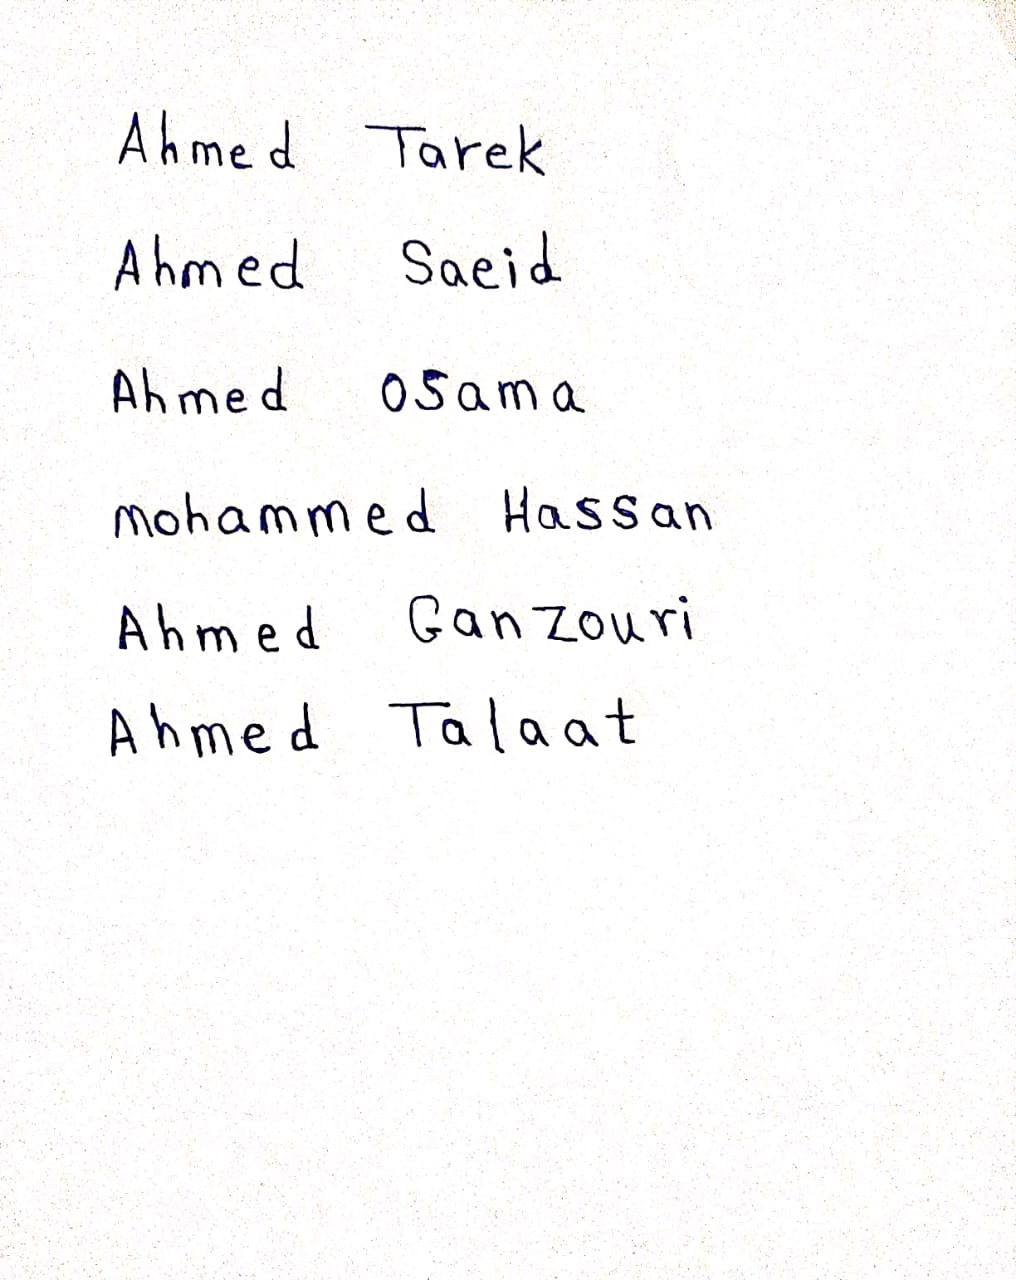 Ahmed Tarek
Ahmed Saeid
Ahmed osama
mohammed Hassan
Ahmed Ganzouri
Ahmed Talaat